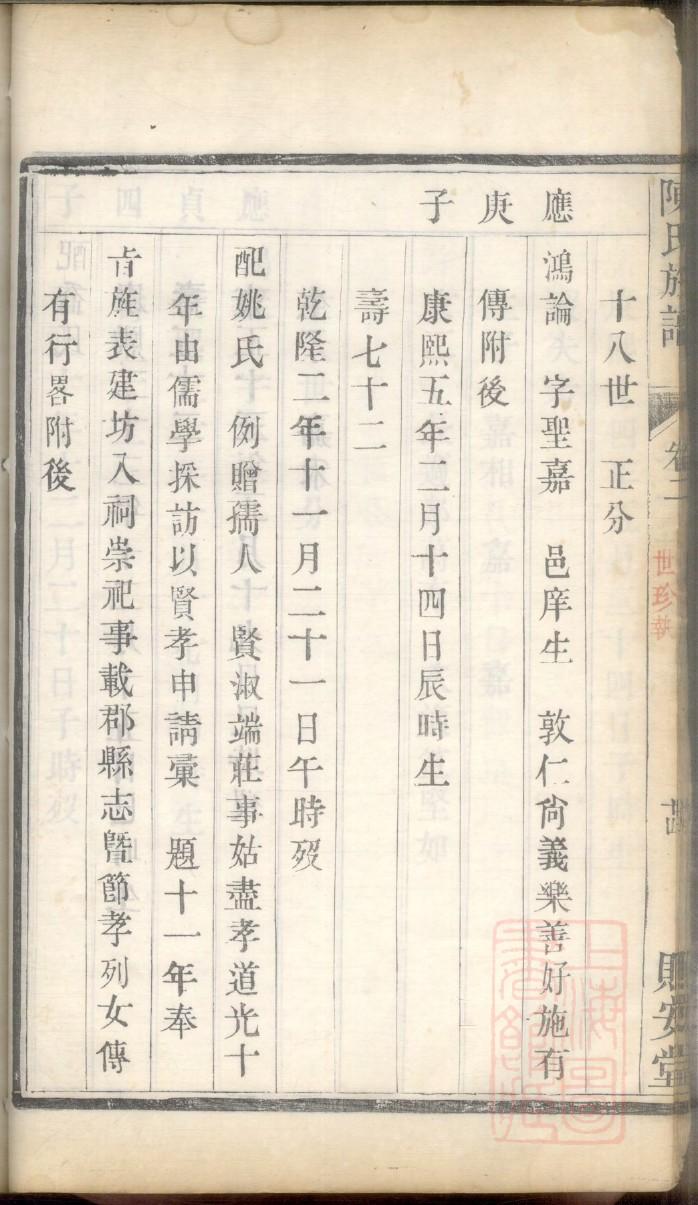 陳氏族譜 卷二 世珍 則安堂
十八世 正分
應庚子
鴻論 字聖嘉 邑庠生 敦仁尙義樂善好施有
傳附後
康熙五年二月十四日辰時生
壽七十二
乾隆二年十一月二十一日午時歿
配姚氏 例贈孺人 賢淑端莊事姑盡孝道光十
年由儒學採訪以賢孝申請彙 題十一年奉
旨旌表建坊入祠崇祀事載郡縣志曁節孝列女傳
有行畧附後
上海圖書館藏